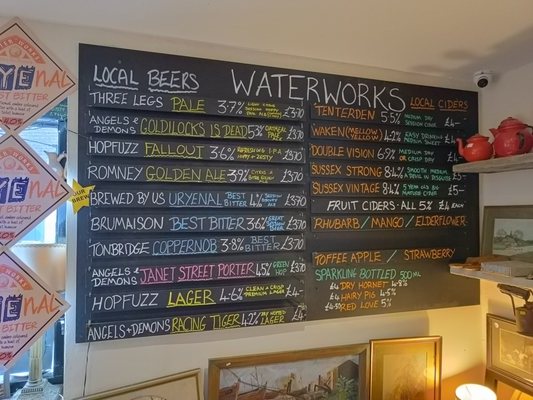 WATERWORKS
LOCAL BEERS
THREE LEGS PALE 3·7% £3.70
ANGELS & DEMONS GOLDILOCKS IS DEAD 5.3% £3.70
HOPFUZZ FALLOUT 3.6% REFRESHING IPA HOPPY + ZESTY £3.70
ROMNEY GOLDEN ALE 3.9% £3.70
BREWED BY US URYENAL BEST BITTER 4% £3.70
BRUMAISON BEST BITTER 3.6% £3.70
TONBRIDGE COPPERNOB 3·8% BEST BITTER £3.70
ANGELS & DEMONS JANET STREET PORTER 4.5% GREEN HOP £3.70
HOPFUZZ LAGER 4·6% CLEAN + CRISP PREMIUM LAGER £4
ANGELS + DEMONS RACING TIGER 4.2% LAGER £4
LOCAL CIDERS
TENTERDEN 5.5% MEDIUM DRY SESSION CIDER £4
WAKEN (MELLOW) YELLOW 4.2% EASY DRINKING MEDIUM SWEET
DOUBLE VISION 6.9% MEDIUM DRY OR CRISP DAY £4
SUSSEX STRONG 8.4% SMOOTH MEDIUM A DEVIL IN DISGUISE £5
SUSSEX VINTAGE 8.4% £5
FRUIT CIDERS· ALL 5% £4 EACH
RHUBARB / MANGO / ELDERFLOWER
TOFFEE APPLE / STRAWBERRY
SPARKLING BOTTLED 500ML
£4 DRY HORNET 4·8%
£4 HAIRY PIG 4·5%
£4.50 RED LOVE 5%
YENAL
BEST BITTER
YE
BITTER
YENAL
BITTER